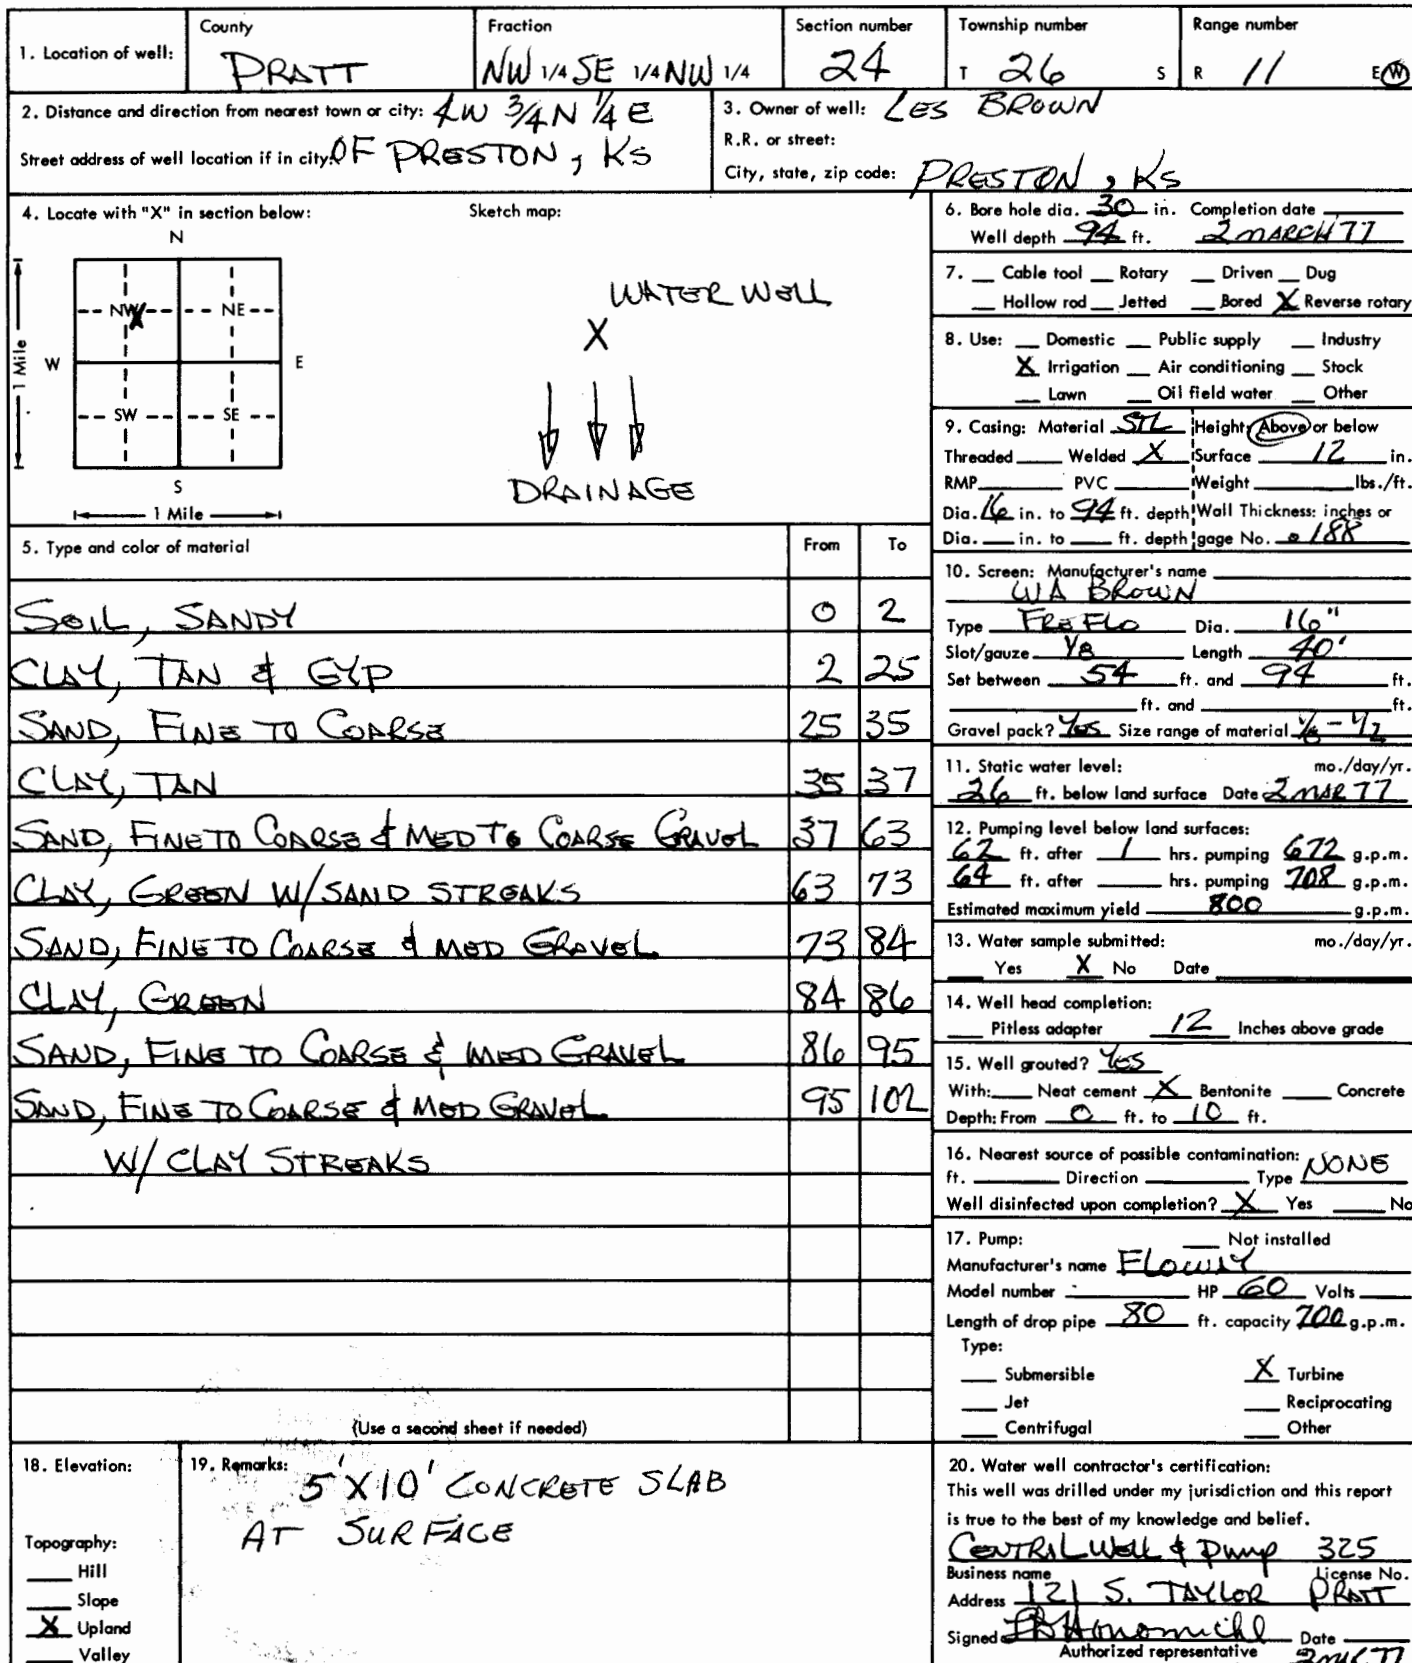 1. Location of well: County PRATT Fraction NW 1/4 SE 1/4 NW 1/4 Section number 24 Township number T 26 S Range number R 11 E W
2. Distance and direction from nearest town or city: 4W 3/4N 1/4E
Street address of well location if in city: OF PRESTON, KS
3. Owner of well: LES BROWN
R.R. or street:
City, state, zip code: PRESTON, KS
4. Locate with "X" in section below: Sketch map:
N
NW X NE
W E
SW SE
S
1 Mile
1 Mile
WATER WELL
X
DRAINAGE
5. Type and color of material From To
SOIL, SANDY 0 2
CLAY, TAN & GYP 2 25
SAND, FINE TO COARSE 25 35
CLAY, TAN 35 37
SAND, FINE TO COARSE & MED TO COARSE GRAVEL 37 63
CLAY, GREEN W/SAND STREAKS 63 73
SAND, FINE TO COARSE & MED GRAVEL 73 84
CLAY, GREEN 84 86
SAND, FINE TO COARSE & MED GRAVEL 86 95
SAND, FINE TO COARSE & MED GRAVEL 95 102
W/ CLAY STREAKS
(Use a second sheet if needed)
6. Bore hole dia. 30 in. Completion date
Well depth 94 ft. 2 MARCH 77
7. Cable tool Rotary Driven Dug
Hollow rod Jetted Bored X Reverse rotary
8. Use: Domestic Public supply Industry
X Irrigation Air conditioning Stock
Lawn Oil field water Other
9. Casing: Material STL Height: Above or below
Threaded Welded X Surface 12 in.
RMP PVC Weight lbs./ft.
Dia. 16 in. to 94 ft. depth Wall Thickness: inches or
Dia. in. to ft. depth gage No. .188
10. Screen: Manufacturer's name
WA BROWN
Type FRE FLO Dia. 16"
Slot/gauze 1/8 Length 40'
Set between 54 ft. and 94 ft.
ft. and ft.
Gravel pack? YES Size range of material 1/8 - 1/2
11. Static water level: mo./day/yr.
26 ft. below land surface Date 2 MAR 77
12. Pumping level below land surfaces:
62 ft. after 1 hrs. pumping 672 g.p.m.
64 ft. after hrs. pumping 708 g.p.m.
Estimated maximum yield 800 g.p.m.
13. Water sample submitted: mo./day/yr.
Yes X No Date
14. Well head completion:
Pitless adapter 12 Inches above grade
15. Well grouted? YES
With: Neat cement X Bentonite Concrete
Depth: From 0 ft. to 10 ft.
16. Nearest source of possible contamination:
ft. Direction Type NONE
Well disinfected upon completion? X Yes No
17. Pump: Not installed
Manufacturer's name FLOWAY
Model number HP 60 Volts
Length of drop pipe 80 ft. capacity 700 g.p.m.
Type:
Submersible X Turbine
Jet Reciprocating
Centrifugal Other
18. Elevation:
Topography:
Hill
Slope
X Upland
Valley
19. Remarks: 5' X 10' CONCRETE SLAB
AT SURFACE
20. Water well contractor's certification:
This well was drilled under my jurisdiction and this report
is true to the best of my knowledge and belief.
CENTRAL WELL & PUMP 325
Business name License No.
Address 121 S. TAYLOR PRATT
Signed Honomichl Date
Authorized representative